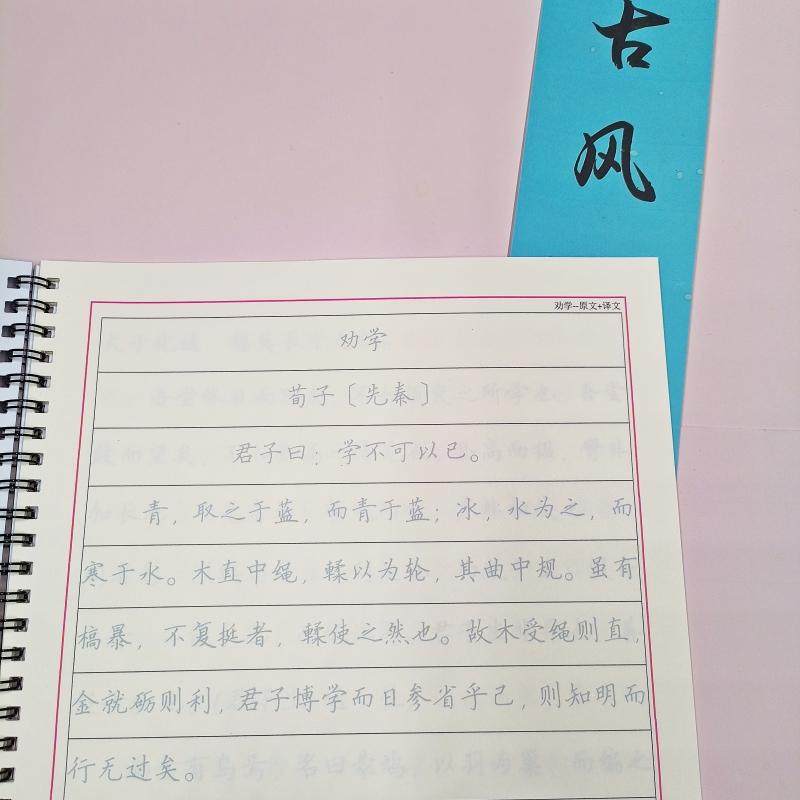 古风
劝学--原文+译文
劝学
荀子〔先秦〕
君子曰：学不可以已。
青，取之于蓝，而青于蓝；冰，水为之，而
寒于水。木直中绳，輮以为轮，其曲中规。虽有
槁暴，不复挺者，輮使之然也。故木受绳则直，
金就砺则利，君子博学而日参省乎己，则知明而
行无过矣。